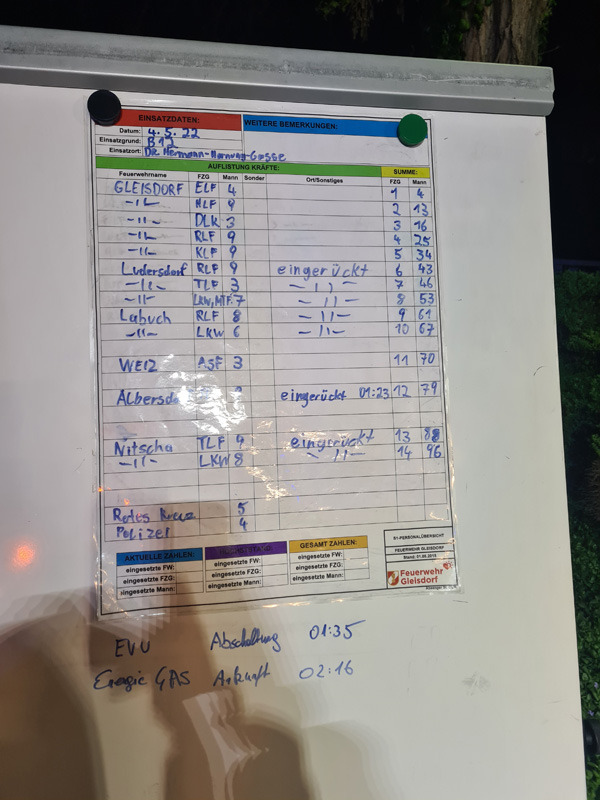 EINSATZDATEN: WEITERE BEMERKUNGEN:
Datum: 4.5.22
Einsatzgrund: B12
Einsatzort: Dr. Hermann-Hornung-Gasse
AUFLISTUNG KRÄFTE: SUMME:
Feuerwehrname FZG Mann Sonder Ort/Sonstiges FZG Mann
GLEISDORF ELF 4 1 4
-||- HLF 9 2 13
-||- DLK 3 3 16
-||- RLF 9 4 25
-||- KLF 9 5 34
Ludersdorf RLF 9 eingerückt 6 43
-||- TLF 3 -||- 7 46
-||- LKW, MTF 7 -||- 8 53
Labuch RLF 8 -||- 9 61
-||- LKW 6 -||- 10 67
WEIZ ASF 3 11 70
Albersdo 9 eingerückt 01:23 12 79
Nitscha TLF 9 eingerückt 13 88
-||- LKW 8 -||- 14 96
Rotes Kreuz 5
Polizei 4
AKTUELLE ZAHLEN: HÖCHSTSTAND: GESAMT ZAHLEN:
eingesetzte FW: eingesetzte FW: eingesetzte FW:
eingesetzte FZG: eingesetzte FZG: eingesetzte FZG:
eingesetzte Mann: eingesetzte Mann: eingesetzte Mann:
S1-PERSONALÜBERSICHT
FEUERWEHR GLEISDORF
Feuerwehr
Gleisdorf
EVU Abschaltung 01:35
Energie GAS Ankunft 02:16